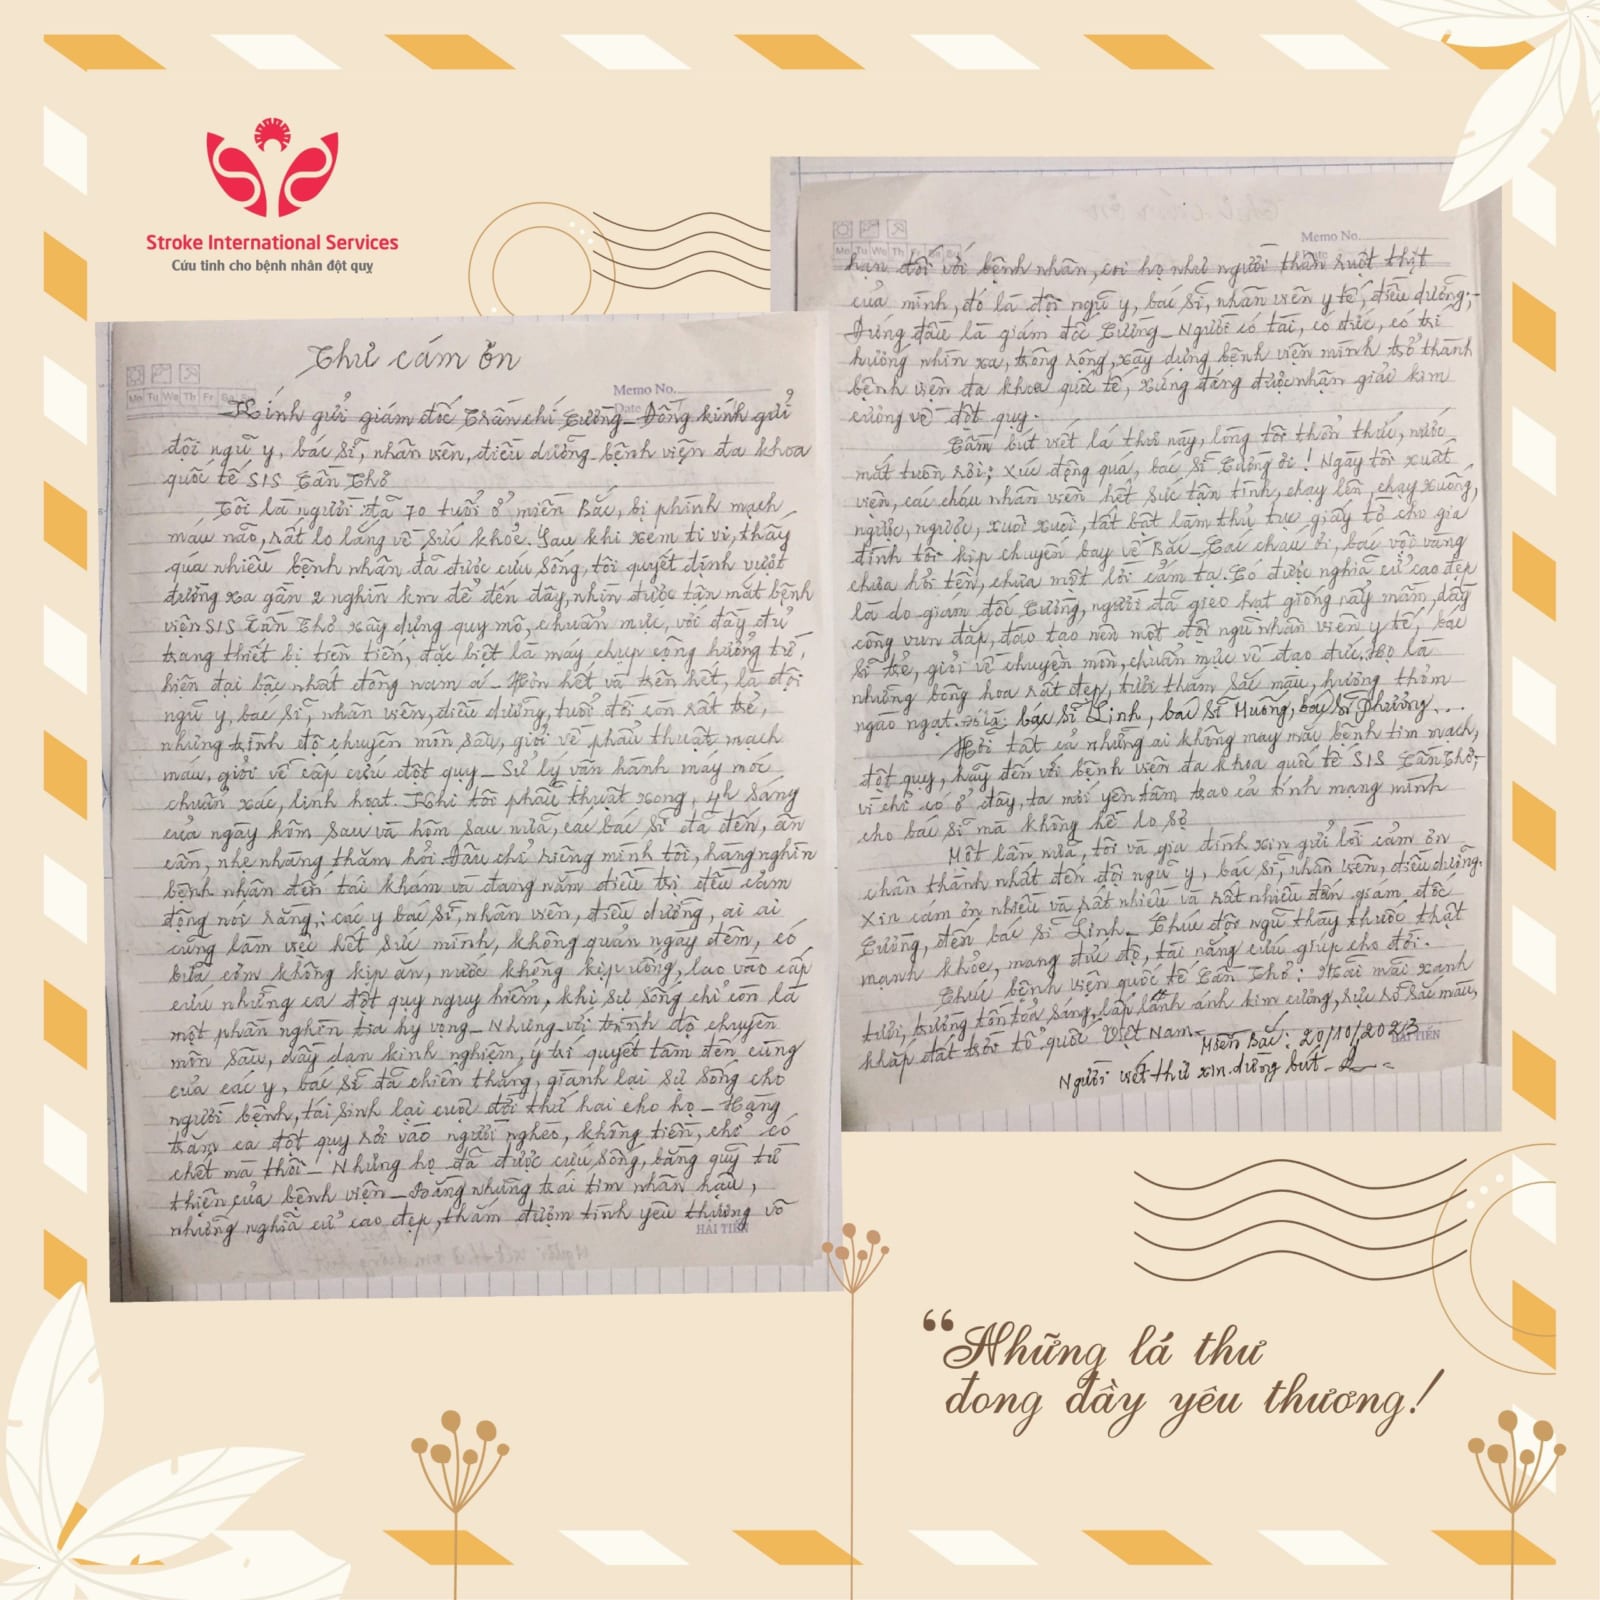 Stroke International Services
Cứu tinh cho bệnh nhân đột quỵ
Thư cám ơn
Memo No.
Date
Mo Tu We Th Fr Sa
Kính gửi giám đốc Trần chí Cường_ Đồng kính gửi
đội ngũ y, bác sĩ, nhân viên, điều dưỡng_bệnh viện đa khoa
quốc tế SIS Cần Thơ
Tôi là người đã 70 tuổi ở miền Bắc, bị phình mạch
máu não, rất lo lắng về sức khỏe. Sau khi xem ti vi, thấy
quá nhiều bệnh nhân đã được cứu sống, tôi quyết định vượt
đường xa gần 2 nghìn km để đến đây, nhìn được tận mắt bệnh
viện SIS Cần Thơ xây dựng quy mô, chuẩn mực, với đầy đủ
trang thiết bị tiên tiến, đặc biệt là máy chụp cộng hưởng từ,
hiện đại bậc nhất đông nam á_ Hơn hết và trên hết, là đội
ngũ y, bác sĩ, nhân viên, điều dưỡng, tuổi đời còn rất trẻ,
nhưng trình độ chuyên môn sâu, giỏi về phẫu thuật mạch
máu, giỏi về cấp cứu đột quỵ_ Sử lý vận hành máy móc
chuẩn xác, linh hoạt. Khi tôi phẫu thuật xong, 4h sáng
của ngày hôm sau và hôm sau nữa, các bác sĩ đã đến, ân
cần, nhẹ nhàng thăm hỏi Đâu chỉ riêng mình tôi, hàng nghìn
bệnh nhân đến tái khám và đang nằm điều trị đều cảm
động nói rằng: các y bác sĩ, nhân viên, điều dưỡng, ai ai
cũng làm việc hết sức mình, không quản ngày đêm, có
bữa cơm không kịp ăn, nước không kịp uống, lao vào cấp
cứu những ca đột quỵ nguy hiểm, khi sự sống chỉ còn là
một phần nghìn tia hy vọng_ Nhưng với trình độ chuyên
môn sâu, dầy dạn kinh nghiệm, ý trí quyết tâm đến cùng
của các y, bác sĩ đã chiến thắng, giành lại sự sống cho
người bệnh, tái sinh lại cuộc đời thứ hai cho họ_ Hàng
trăm ca đột quỵ rơi vào người nghèo, không tiền, chỉ có
chết mà thôi_ Nhưng họ đã được cứu sống, bằng quỹ từ
thiện của bệnh viện_ Bằng những trái tim nhân hậu,
những nghĩa cử cao đẹp, thấm đượm tình yêu thương vô
HẢI TIẾN
Memo No.
Mo Tu We Th Fr Sa
hạn đối với bệnh nhân, coi họ như người thân ruột thịt
của mình, đó là đội ngũ y, bác sĩ, nhân viên y tế, điều dưỡng;
Đứng đầu là giám đốc Cường_ Người có tài, có đức, có tri
hướng nhìn xa, trông rộng, xây dựng bệnh viện mình trở thành
bệnh viện đa khoa quốc tế, xứng đáng được nhận giải kim
cương về đột quỵ.
Cầm bút viết lá thư này, lòng tôi thổn thức, nước
mắt tuôn rơi; xúc động quá, bác sĩ Cường ơi! Ngày tôi xuất
viện, các cháu nhân viên hết sức tận tình, chạy lên, chạy xuống,
ngược, ngược, xuôi xuôi, tất bật làm thủ tục giấy tờ cho gia
đình tôi kịp chuyến bay về Bắc_ Các cháu ơi, bác vội vàng
chưa hỏi tên, chưa một lời cảm tạ. Có được nghĩa cử cao đẹp
là do giám đốc Cường, người đã gieo hạt giống nẩy mầm, dầy
công vun đắp, đào tạo nên một đội ngũ nhân viên y tế, bác
sĩ trẻ, giỏi về chuyên môn, chuẩn mực về đạo đức. Họ là
những bông hoa rất đẹp, tươi thắm sắc mầu, hương thơm
ngào ngạt. bác sĩ Linh, bác sĩ Mương, bác sĩ Phương...
Hỡi tất cả những ai không may mắc bệnh tim mạch,
đột quỵ, hãy đến với bệnh viện đa khoa quốc tế SIS Cần Thơ,
vì chỉ có ở đây, ta mới yên tâm trao cả tính mạng mình
cho bác sĩ mà không hề lo sợ
Một lần nữa, tôi và gia đình xin gửi lời cảm ơn
chân thành nhất đến đội ngũ y, bác sĩ, nhân viên, điều dưỡng.
Xin cám ơn nhiều và rất nhiều và rất nhiều đến giám đốc
Cường, đến bác sĩ Linh_ Chúc đội ngũ thầy thuốc thật
mạnh khỏe, mang đức độ, tài năng cứu giúp cho đời.
Chúc bệnh viện quốc tế Cần Thơ: Mãi mãi xanh
tươi, trường tồn tỏa sáng, lấp lánh ánh kim cương, rực rỡ sắc mầu,
khắp đất trời tổ quốc Việt Nam_
Miền Bắc: 20/10/2023
HẢI TIẾN
Người viết thư xin dừng bút_
“Những lá thư
đong đầy yêu thương!